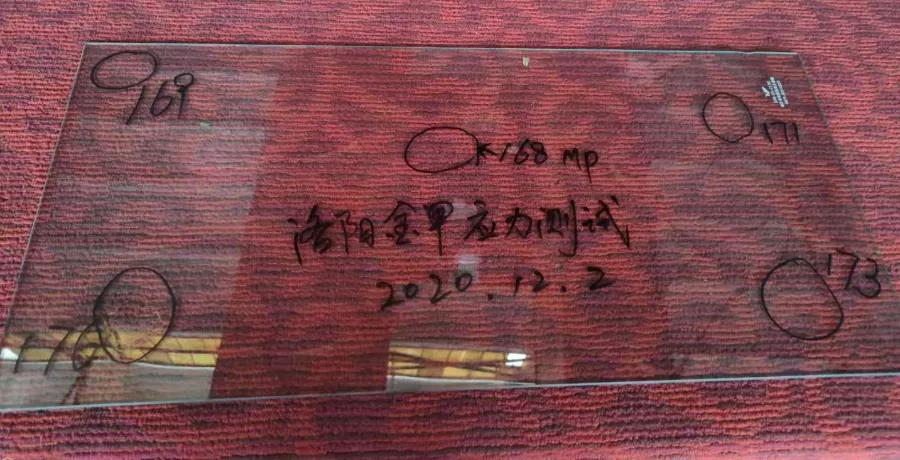 169
171
168 MP
洛阳金甲应力测试
2020.12.2
173